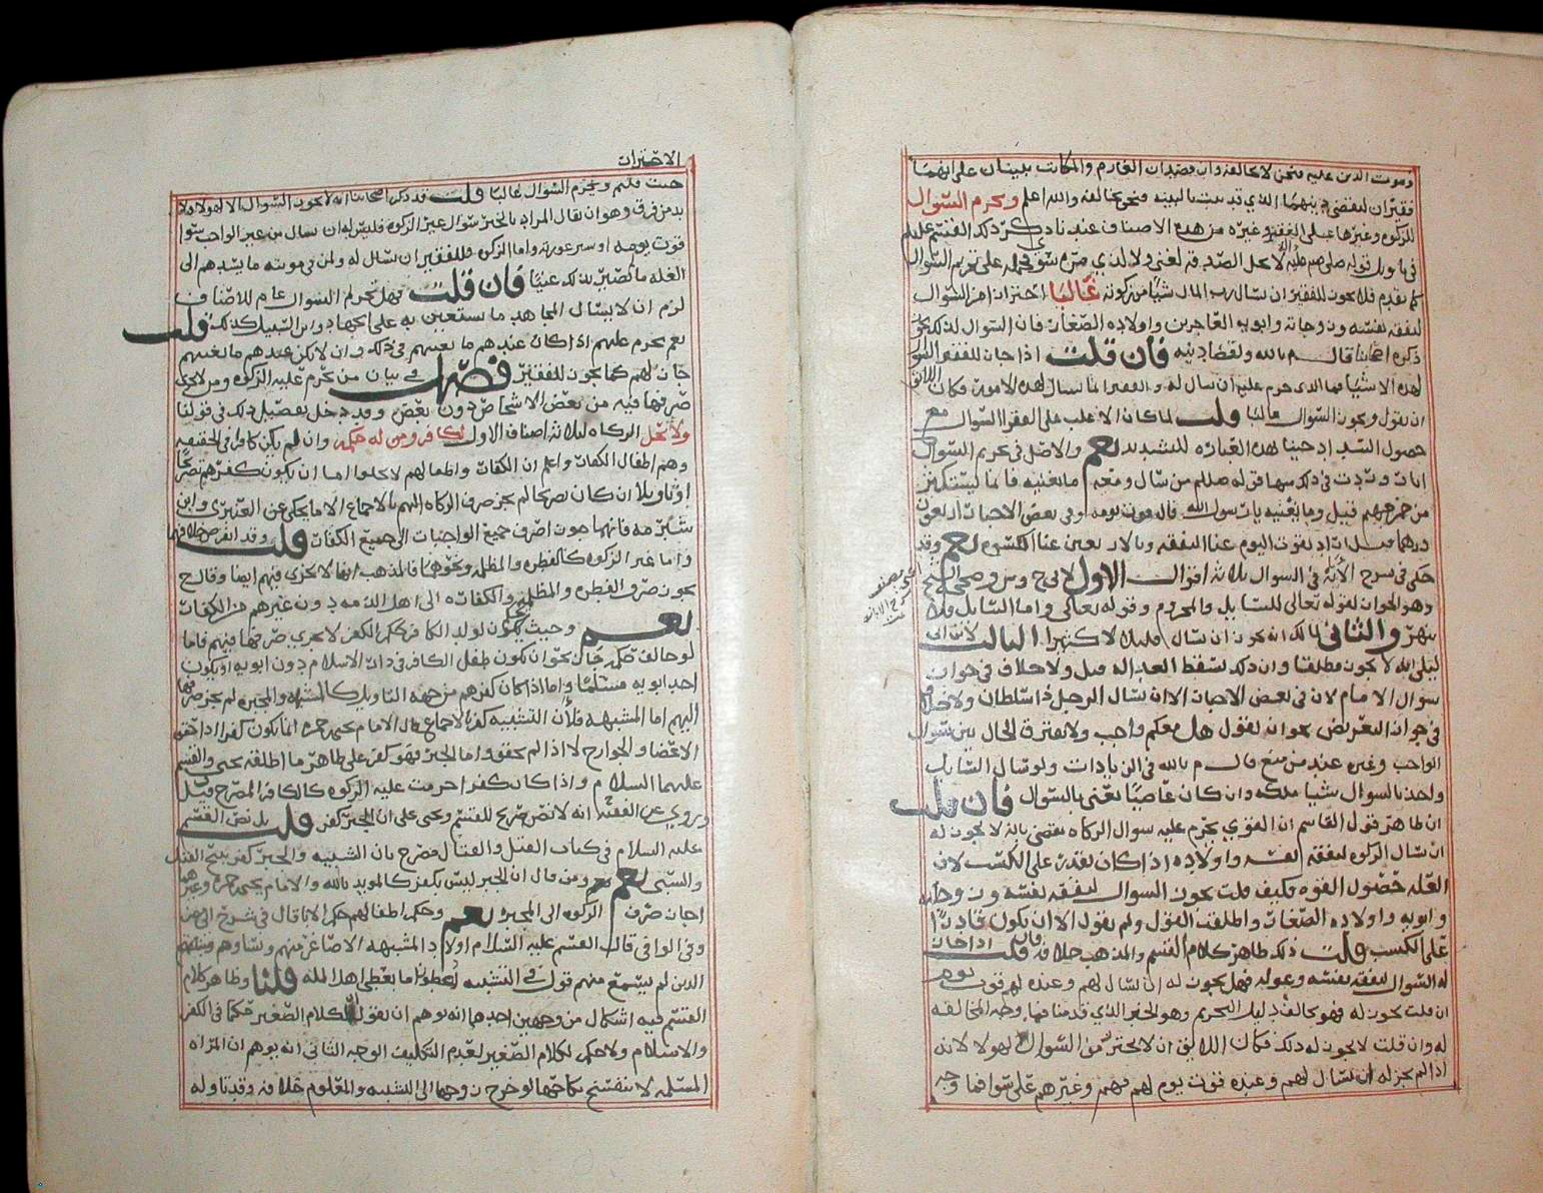 وموت الدين عليه فنحن لا نخالفه وان قصد ان الغارم والمكاتب يدينان على انهما
فقيران ليقضي دينهما الذي قد ثبت بالبينه فنحن نخالفه والله اعلم ويحرم السؤال
للزكوه وغيرها على الفقير وغيره من هذه الاصناف عند نا
كما تقدم فلا يجوز للفقير ان يسال رب المال شيا من زكوته غالبا احتراز من السؤال
لنفقه نفسه وزوجاته وابويه العاجزين واولاده الصغار فان السوال لذلك يجوز
ذكره اصحابنا قال م بالله ولقضا دينه فان قلت اذا جاز للفقير السؤال
لهذه الاشيا فما الذي حرم عليه ان سال له والفقير انما يسال لهذه الامور فكان اللائق
ان يقول ويجوز السؤال غالبا قلت لما كان الاغلب على الفقرا السؤال مع
حصول السد احتيج هذه العباره للتشديد نعم والاصل في تحريم السؤال
اثار وردت في ذلك منها قوله صللم من سال ومعه ما يغنيه فانما يستكثر
من جمر جهنم قيل وما يغنيه يارسول الله قال قوت يومه وفي بعض الاخبار اربعون
درهما
حكى في شرح الابانه في السؤال ثلاثه اقوال الاول لابي ح وش وصححه الشيخ
وهو الجواز لقوله تعالى للسايل والمحروم وقوله تعالى واما السايل فلا
تنهر والثاني لمالك انه يجوز ان يسال قليلا لا كثيرا الثالث لابن ابي
ليلى انه لا يجوز مطلقا وان ذلك يسقط العداله قيل ولا خلاف في جواز
سوال الامام لان في بعض الاخبار الا ان يسال الرجل ذا سلطان ولا خلاف
في جواز التعريض نحو ان يقول هل معكم واجب ولا يفترق الحال بين سوال
الواجب وغيره عند من منع قال م بالله في الزيادات ولو سال السايل
واخذ بالسوال شيا ملكه وان كان عاصيا يعني بالسؤال فان قلت
ان ظاهر قول القاسم ان القوي يحرم عليه سوال الزكاه يقضي بانه لا يجوز له
ان يسال الزكوه لنفقه نفسه واولاده اذا كان يقدر على الكسب لان
العله حصول القوه فكيف قلت يجوز السوال لنفقه نفسه وزوجاته
وابويه واولاده الصغار واطلقت القول ولم تقول الا ان يكون قادرا
على الكسب قلت ذلك ظاهر كلام القسم والمذهب خلافه فان قلت اذا جاز
له السؤال لنفقه نفسه وعوله فهل يجوز له ان يسال لهم وعنده لهم قوت يوم
ان قلت يجوز له فهو يخالف دليل التحريم وهو الخبر الذي قدمنا فما وجه المخالفه
له وان قلت لا يجوز له ذلك فكان اللائق ان لا يحترز من السؤال لهولا لانه
اذا لم يجز له ان يسال لهم وعنده قوت يوم لهم فهم وغيرهم على سوا فما وجه
الاحتراز
حيث قلتم ويحرم السؤال غالبا قلت قد ذكر اصحابنا انه لا يجوز السؤال الا لهولا فلا
بد من فرق وهو ان يقال المراد بالخبر سؤال غير الزكوه فليس له ان يسال من غير الواجب سوا
قوت يومه او ستر عورته واما الزكوه فللفقير ان يسال له ولمن في مونته ما يسدهم الى
الغله ما لم يصير بذلك غنيا فان قلت فهل تحريم السؤال عام للاصناف
لزم ان لا يسال المجاهد ما يستعين به على الجهاد وابن السبيل كذلك قلت
نعم يحرم عليهم اذا كان عندهم ما يعينهم في ذلك وان لا يكن عندهم ما يعينهم
جاز لهم كما يجوز للفقير فصل في بيان من تحرم عليه الزكوه ومن لا يجزي
صرفها فيه من بعض الاشخاص دون بعض وقد دخل تفصيل ذلك في قولنا
ولا تحل الزكاه لثلاثه اصناف الاول لكافر ومن له حكمه وان لم يكن كافرا في الحقيقه
وهم اطفال الكفار واعلم ان الكفار واطفالهم لا يخلوا اما ان يكون كفرهم تصريحا
او تاويلا ان كان تصريحا لم يجز صرف الزكاه اليهم بالاجماع الا ما يحكى عن العنبري وابن
شبرمه فانهما جوزا صرف جميع الواجبات الى جميع الكفار قلت وقد انقرض خلافهما
واما غير الزكوه كالفطره والمظلمه ونحوهما فالمذهب انها لا تجزي فيهم ايضا وقال ح
يجوز صرف الفطره والمظلمه والكفاره الى اهل الذمه دون غيرهم من الكفار
نعم وحيث يكون لولد الكافر حكم الكفر لا يجزي صرفها فيهم فاما
لو خالف حكمه جاز نحو ان يكون طفل الكافر في دار الاسلام دون ابويه او يكون
احد ابويه مسلما واما اذا كان كفرهم من جهه التاويل كالمشبهه والمجبره لم يجز صرفها
اليهم اما المشبهه فلأن التشبيه كفر بالاجماع قال الامام يحيى بن حمزه انما يكون كفرا اذا حقق
الاعضا والجوارح لا اذا لم يحقق واما الجبر فهو كفر على ظاهر ما اطلقه يحيى والقسم
عليهما السلام واذا كان كفرا حرمت عليه الزكوه كالكافر المصرح قيل
وروي عن الفقيه انه لا نص صريح للقسم ويحيى على ان الجبر كفر قلت بل نص القسم
عليه السلام في كتاب القتل والقتال فصرح بان التشبيه والجبر كفر يبيح القتل
والسبي نعم ومن قال ان الجبر ليس بكفر كالمويد بالله والامام يحيى بن حمزه وغيرهما
اجاز صرف الزكوه الى المجبره نعم وحكم اطفالهم حكم الابا قال في شرح ابي مضر
وفي الوافي قال القسم عليه السلام اولاد المشبهه الاصاغر منهم ونساوهم
الذين لم يسمع منهم قول في التشبيه يعطوا ما يعطى اهل المله قلنا وظاهر كلام
القسم فيه اشكال من وجهين احدهما انه يوهم ان يقول لكلام الصغير حكما في الكفر
والاسلام ولا حكم لكلام الصغير لعدم التكليف الوجه الثاني انه يوهم ان المراه
المسلمه لا ينفسخ نكاحها لو خرج زوجها الى التشبيه والمعلوم خلافه وقد تاوله